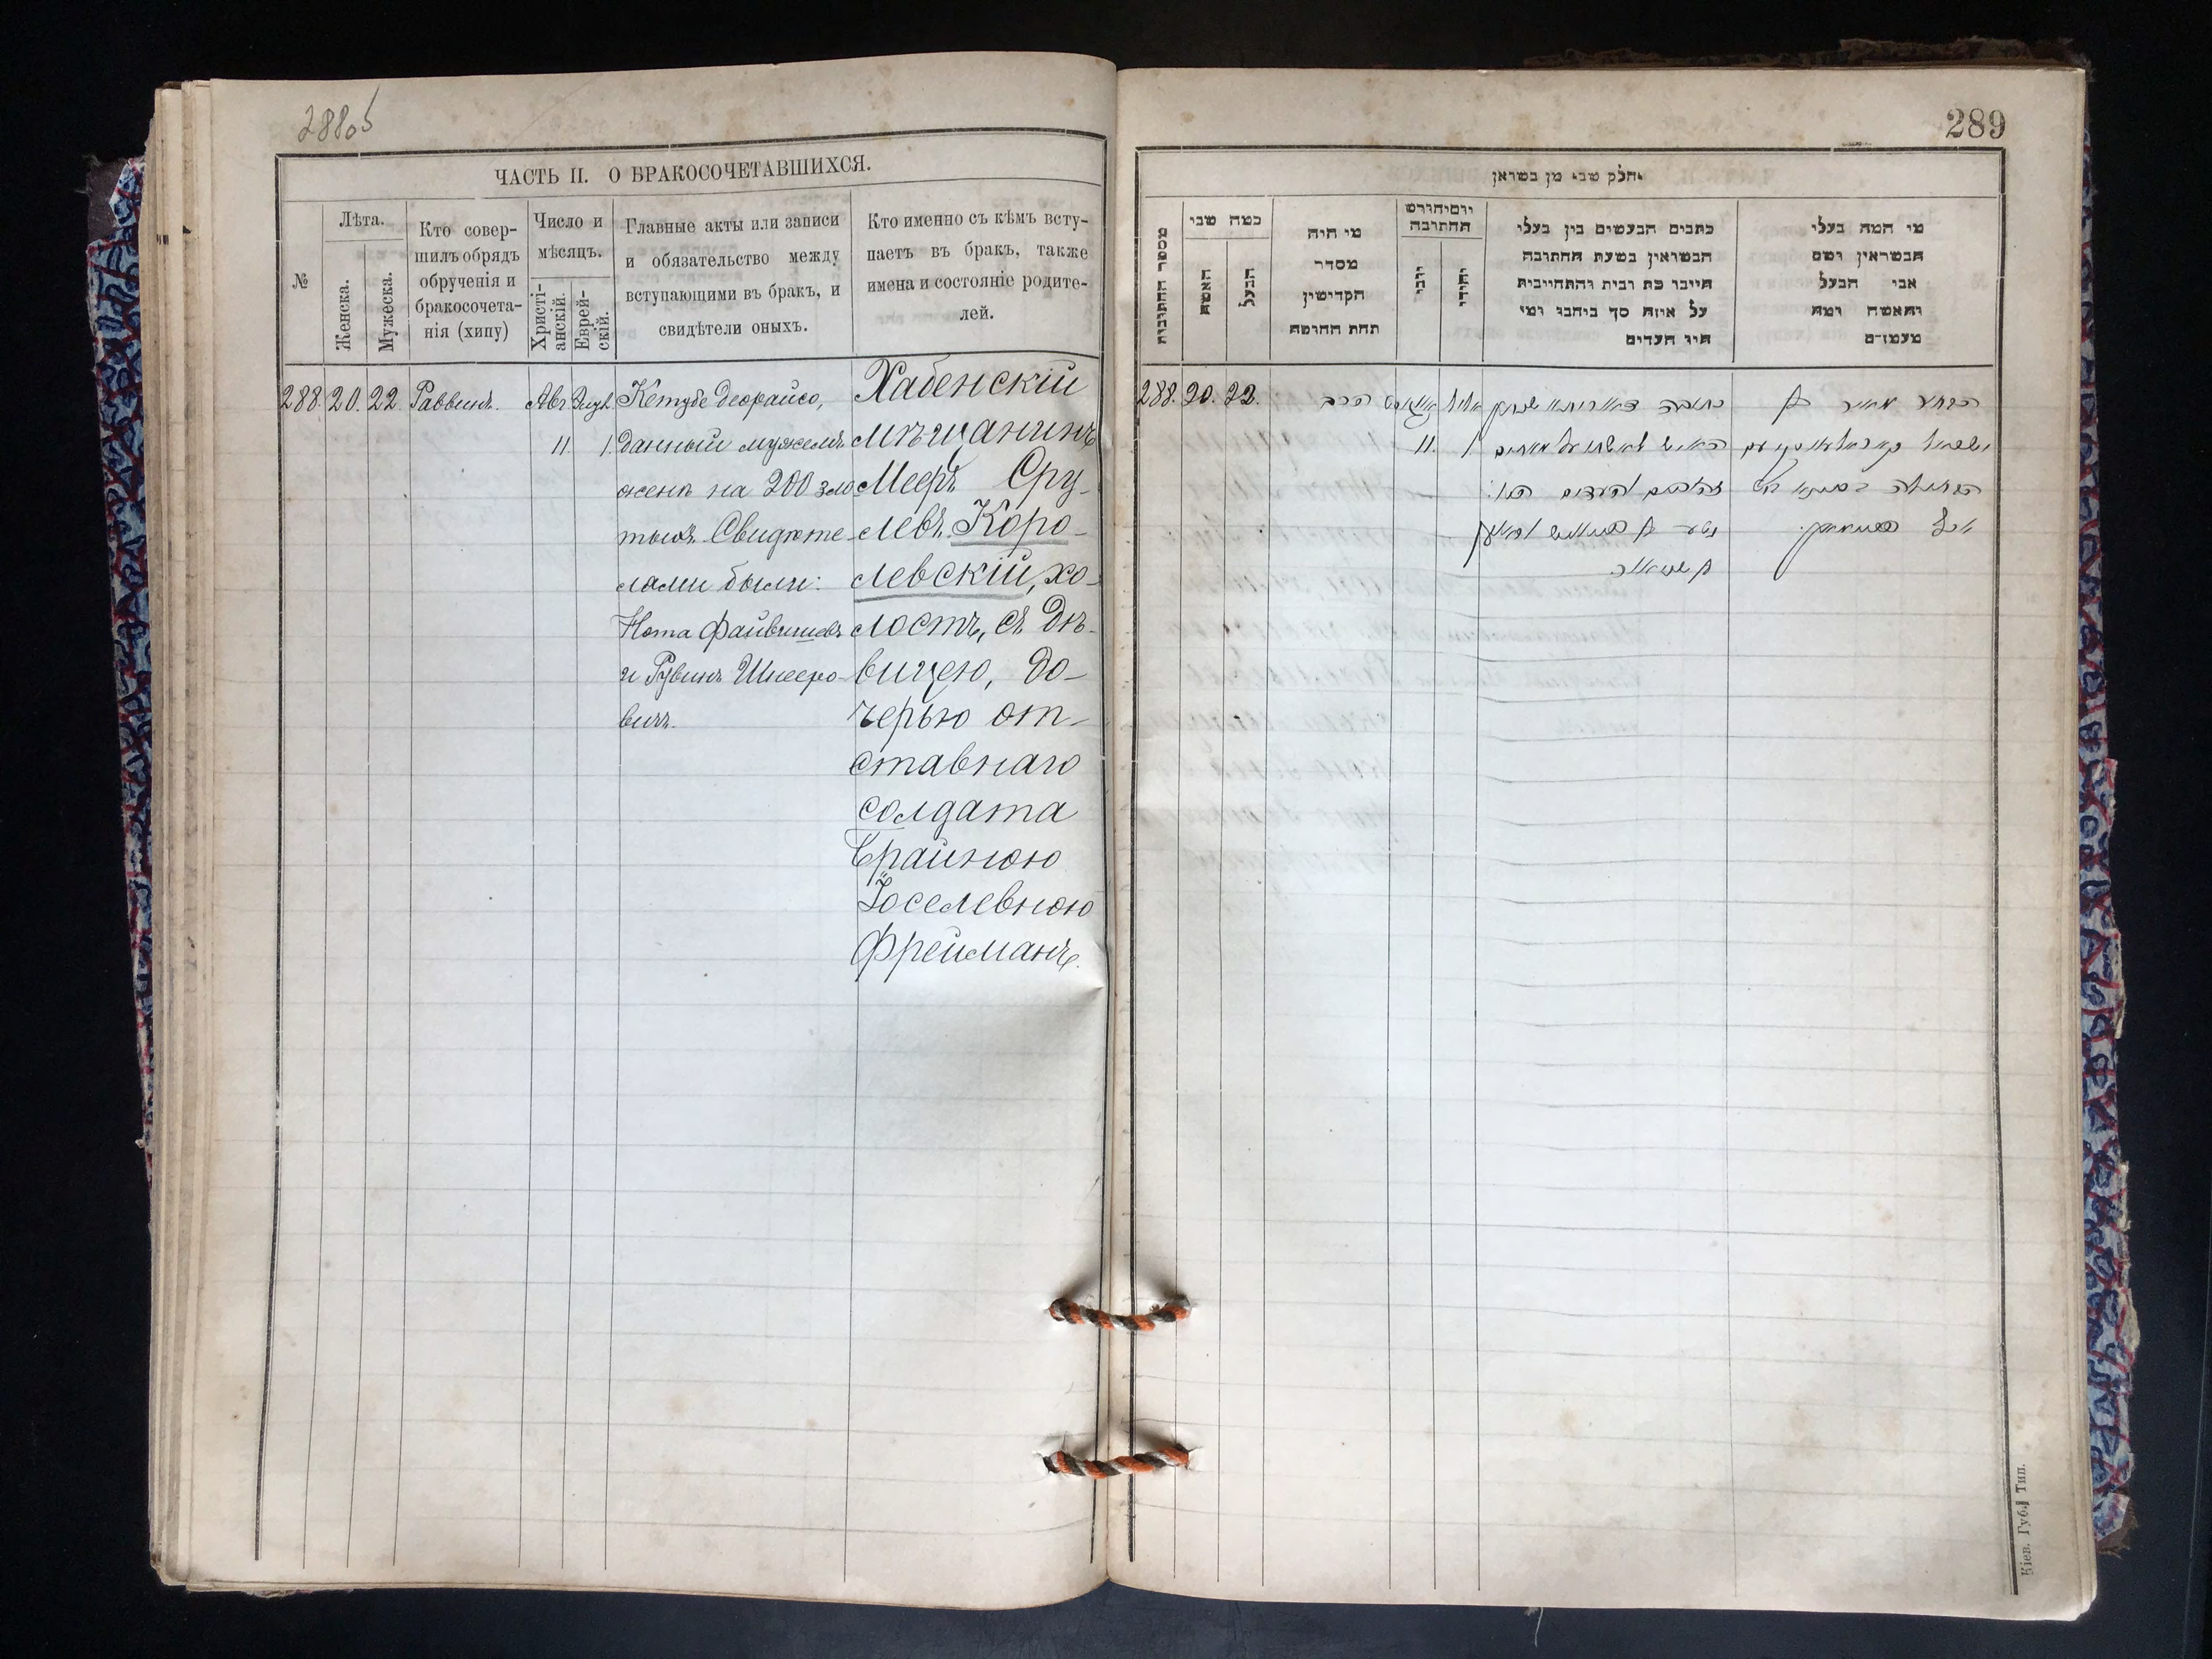 288об
ЧАСТЬ II. О БРАКОСОЧЕТАВШИХСЯ.
№
Лѣта.
Женска.
Мужеска.
Кто совер-
шилъ обрядъ
обрученія и
бракосочета-
нія (хипу)
Число и
мѣсяцъ.
Христі-
анскій.
Еврей-
скій.
Главные акты или записи
и обязательство между
вступающими въ бракъ, и
свидѣтели оныхъ.
Кто именно съ кѣмъ всту-
паетъ въ бракъ, также
имена и состояніе родите-
лей.
288. 20. 22. Раввинъ.
Авг. Элул.
11. 1.
Кетубе деорайсо,
данный мужемъ
женѣ на 200 зло-
тыхъ. Свидѣте-
лями были:
Нота Файвишевъ
и Рувинъ Шнееро-
вичъ.
Хабенскій
мѣщанинъ
Мееръ Сру-
левъ Коро-
левскій, хо-
лостъ, съ дѣ-
вицею, до-
черью от-
ставнаго
солдата
Фрайною
Іоселевною
Фрейманъ.
289
חלק שני מן נשואין
מספר החתונות
כמה שני
האשה
הבעל
מי היה
מסדר
הקדישין
תחת החופה
יום וחודש
החתונה
כתבים הנעשים בין בעלי
הנשואין בשעת החתונה
היינו כתובות והתחייבות
על איזה סך ביחבו ומי
היו העדים
מי המה בעלי
הנשואין ושם
אבי הבעל
והאשה ומה
מעמדם
288. 20. 22.
הרב
אויגוסט אלול
11. 1
כתובה דאורייתא
האיש לאשתו על מאתים
זהובים והעדים היו:
הבחור מאיר בן
Кіев. Губ. Тип.